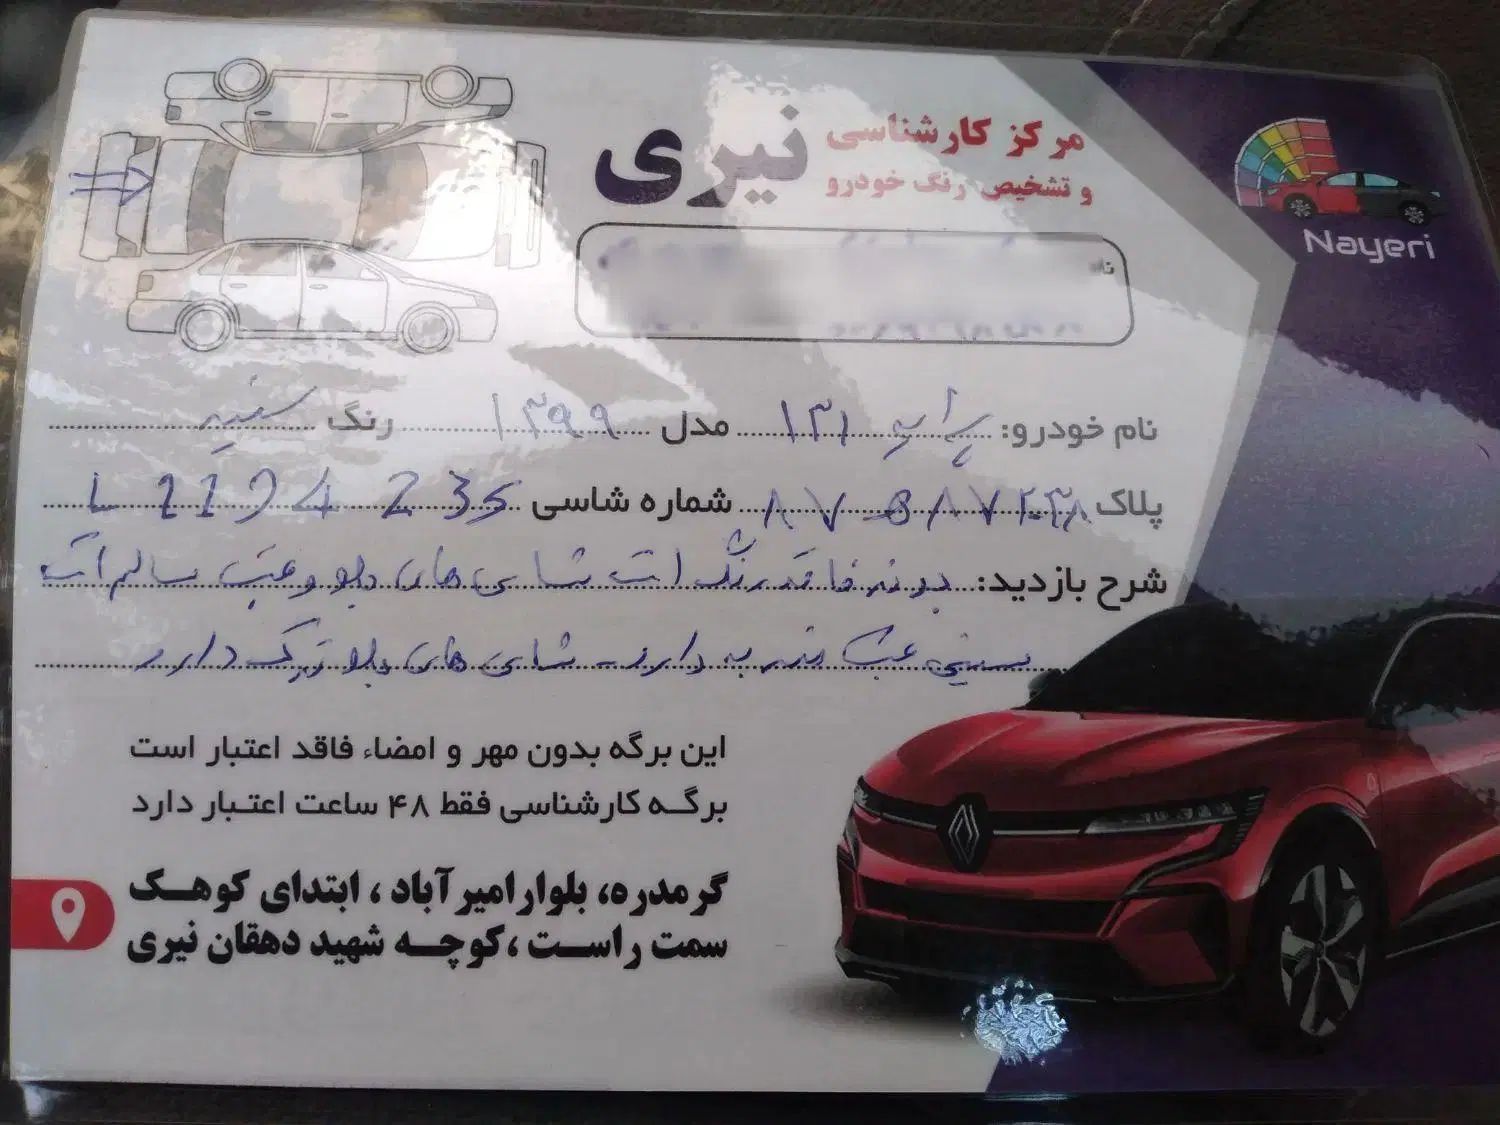 مرکز کارشناسی
و تشخیص رنگ خودرو
نیری
Nayeri
نام خودرو: پراید ۱۳۱ مدل ۱۳۹۹ رنگ سفید
پلاک شماره شاسی
شرح بازدید: بدنه فاقد رنگ است شاسی های جلو و عقب سالم است
سینی عقب ضربه دارد - شاسی های جلو ترک دارد
این برگه بدون مهر و امضاء فاقد اعتبار است
برگه کارشناسی فقط ۴۸ ساعت اعتبار دارد
گرمدره، بلوار امیرآباد، ابتدای کوهک
سمت راست، کوچه شهید دهقان نیری